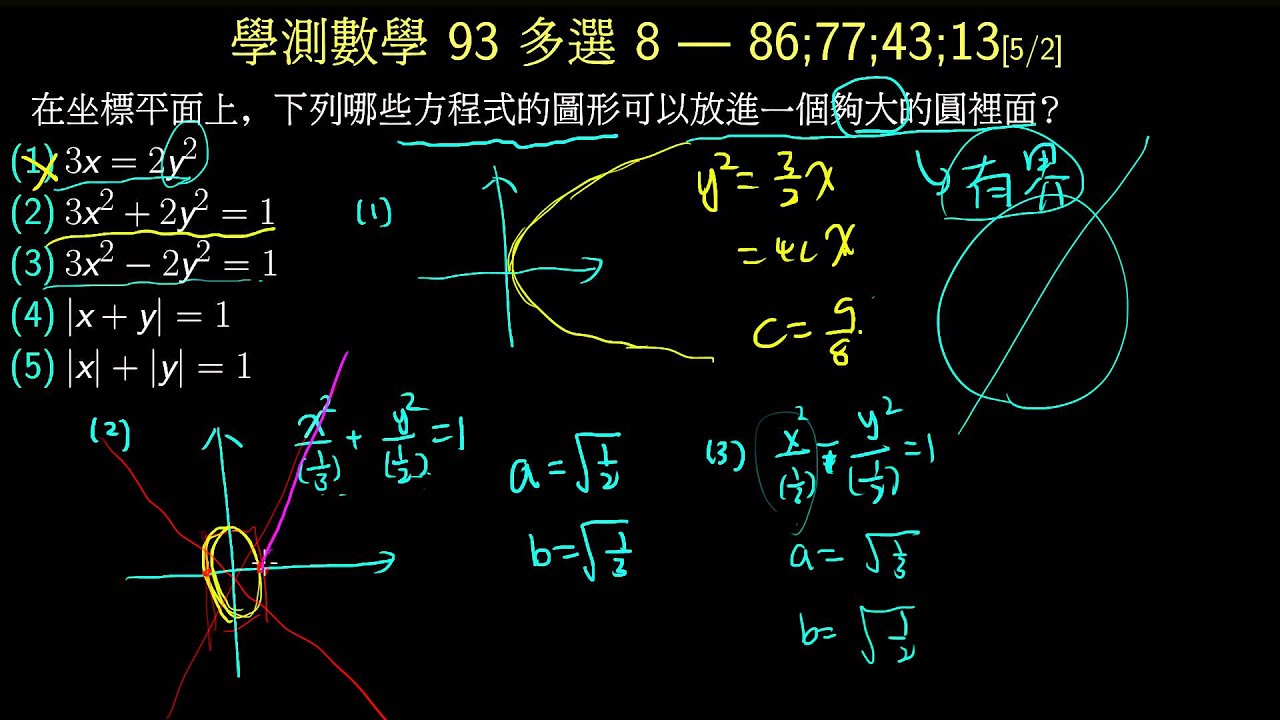 學測數學 93 多選 8 — 86;77;43;13[5/2]
在坐標平面上，下列哪些方程式的圖形可以放進一個夠大的圓裡面?
(1) 3x = 2y²
(2) 3x² + 2y² = 1
(3) 3x² − 2y² = 1
(4) |x + y| = 1
(5) |x| + |y| = 1
有界
(1)
y² = 3/2 x
= 4c x
c =
(2)
x²/(1/3) + y²/(1/2) = 1
a = √(1/2)
b = √(1/3)
(3)
x²/(1/3) − y²/(1/2) = 1
a = √(1/3)
b = √(1/2)